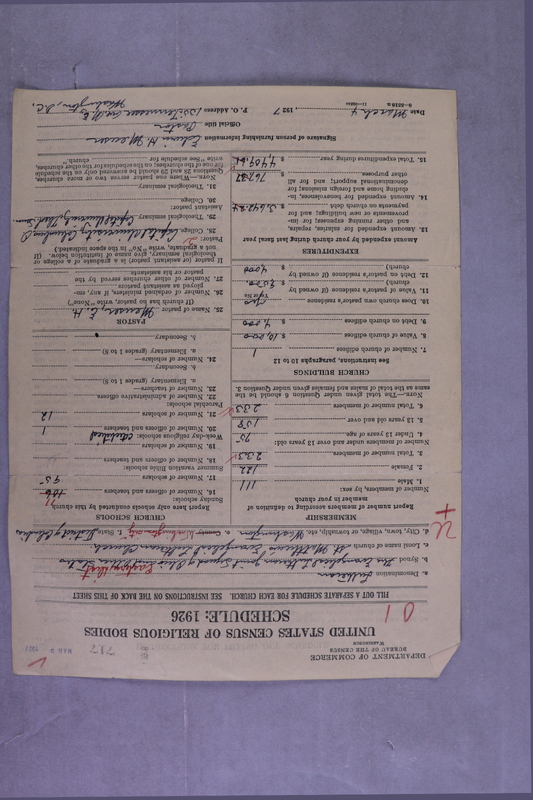 DEPARTMENT OF COMMERCE
BUREAU OF THE CENSUS
WASHINGTON
717
MAR 9 1927
UNITED STATES CENSUS OF RELIGIOUS BODIES
SCHEDULE: 1926
FILL OUT A SEPARATE SCHEDULE FOR EACH CHURCH. SEE INSTRUCTIONS ON THE BACK OF THIS SHEET
a. Denomination Lutheran
b. Synod The Evangelical Lutheran Joint Synod of Ohio and Other States
c. Local name of church St. Matthew's Evangelical Lutheran Church
d. City, town, village, or township, etc. Washington e. County Washington City f. State District of Columbia
MEMBERSHIP
Report number of members according to definition of member in your church
Number of members, by sex:
1. Male 111
2. Female 122
3. Total number of members 233
Number of members under and over 13 years old:
4. Under 13 years of age 75
5. 13 years old and over 158
6. Total number of members 233
NOTE.—The total given under Question 6 should be the same as the total of males and females given under Question 3.
CHURCH BUILDINGS
See instructions, paragraphs 10 to 12
7. Number of church edifices 1
8. Value of church edifices $
9. Debt on church edifices $
10. Does church own pastor's residence
(Yes or No)
11. Value of pastor's residence (if owned by church) $
12. Debt on pastor's residence (if owned by church) $ 4000
EXPENDITURES
Amount expended by your church during last fiscal year
13. Amount expended for salaries, repairs, and other running expenses; for improvements or new building; and for payments on church debt $ 3,642.24
14. Amount expended for benevolences, including home and foreign missions; for denominational support; and for all other purposes $ 767.37
15. Total expenditures during year $ 4,409.61
CHURCH SCHOOLS
Report here only schools conducted by this church
Sunday schools:
16. Number of officers and teachers
17. Number of scholars 95
Summer vacation Bible schools:
18. Number of officers and teachers
19. Number of scholars
Week-day religious schools:
20. Number of officers and teachers 1
21. Number of scholars 12
Parochial schools:
22. Number of administrative officers
23. Number of teachers—
a. Elementary (grades 1 to 8)
b. Secondary
24. Number of scholars—
a. Elementary (grades 1 to 8)
b. Secondary
PASTOR
25. Name of pastor Meuser, E. H.
(If church has no pastor, write "None")
26. Number of ordained ministers, if any, employed as assistant pastors
27. Number of other churches served by the pastor or his assistants
If pastor (or assistant pastor) is a graduate of a college or theological seminary, give name of institution below. (If not a graduate, write "No" in the space indicated.)
Pastor:
28. College Capital University Columbus O
29. Theological seminary Capital University
Assistant pastor:
30. College
31. Theological seminary
NOTE.—Where one pastor serves two or more churches, Questions 28 and 29 should be answered only on the schedule for one of the churches; on the schedules for the other churches, write "See schedule for church."
Signature of person furnishing information Edwin H. Meuser
Official title Pastor
Date March 4, 1927 P. O. Address Washington, D.C.